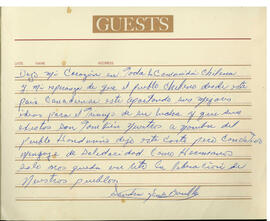 GUESTS
DATE NAME
Dejo mi Corazón en Toda la Comunidad Chilena
y mi esperanza de que el pueblo Chileno desde este
país Canadiense este aportando sus mejores
para el triunfo de su lucha y que sus
exitos son También nuestros a nombre del
pueblo Hondureño dejo este Corto pero Conciso
mensaje de Solidaridad Como Hermanos
solo nos queda un reto la liberación de
Nuestros pueblos